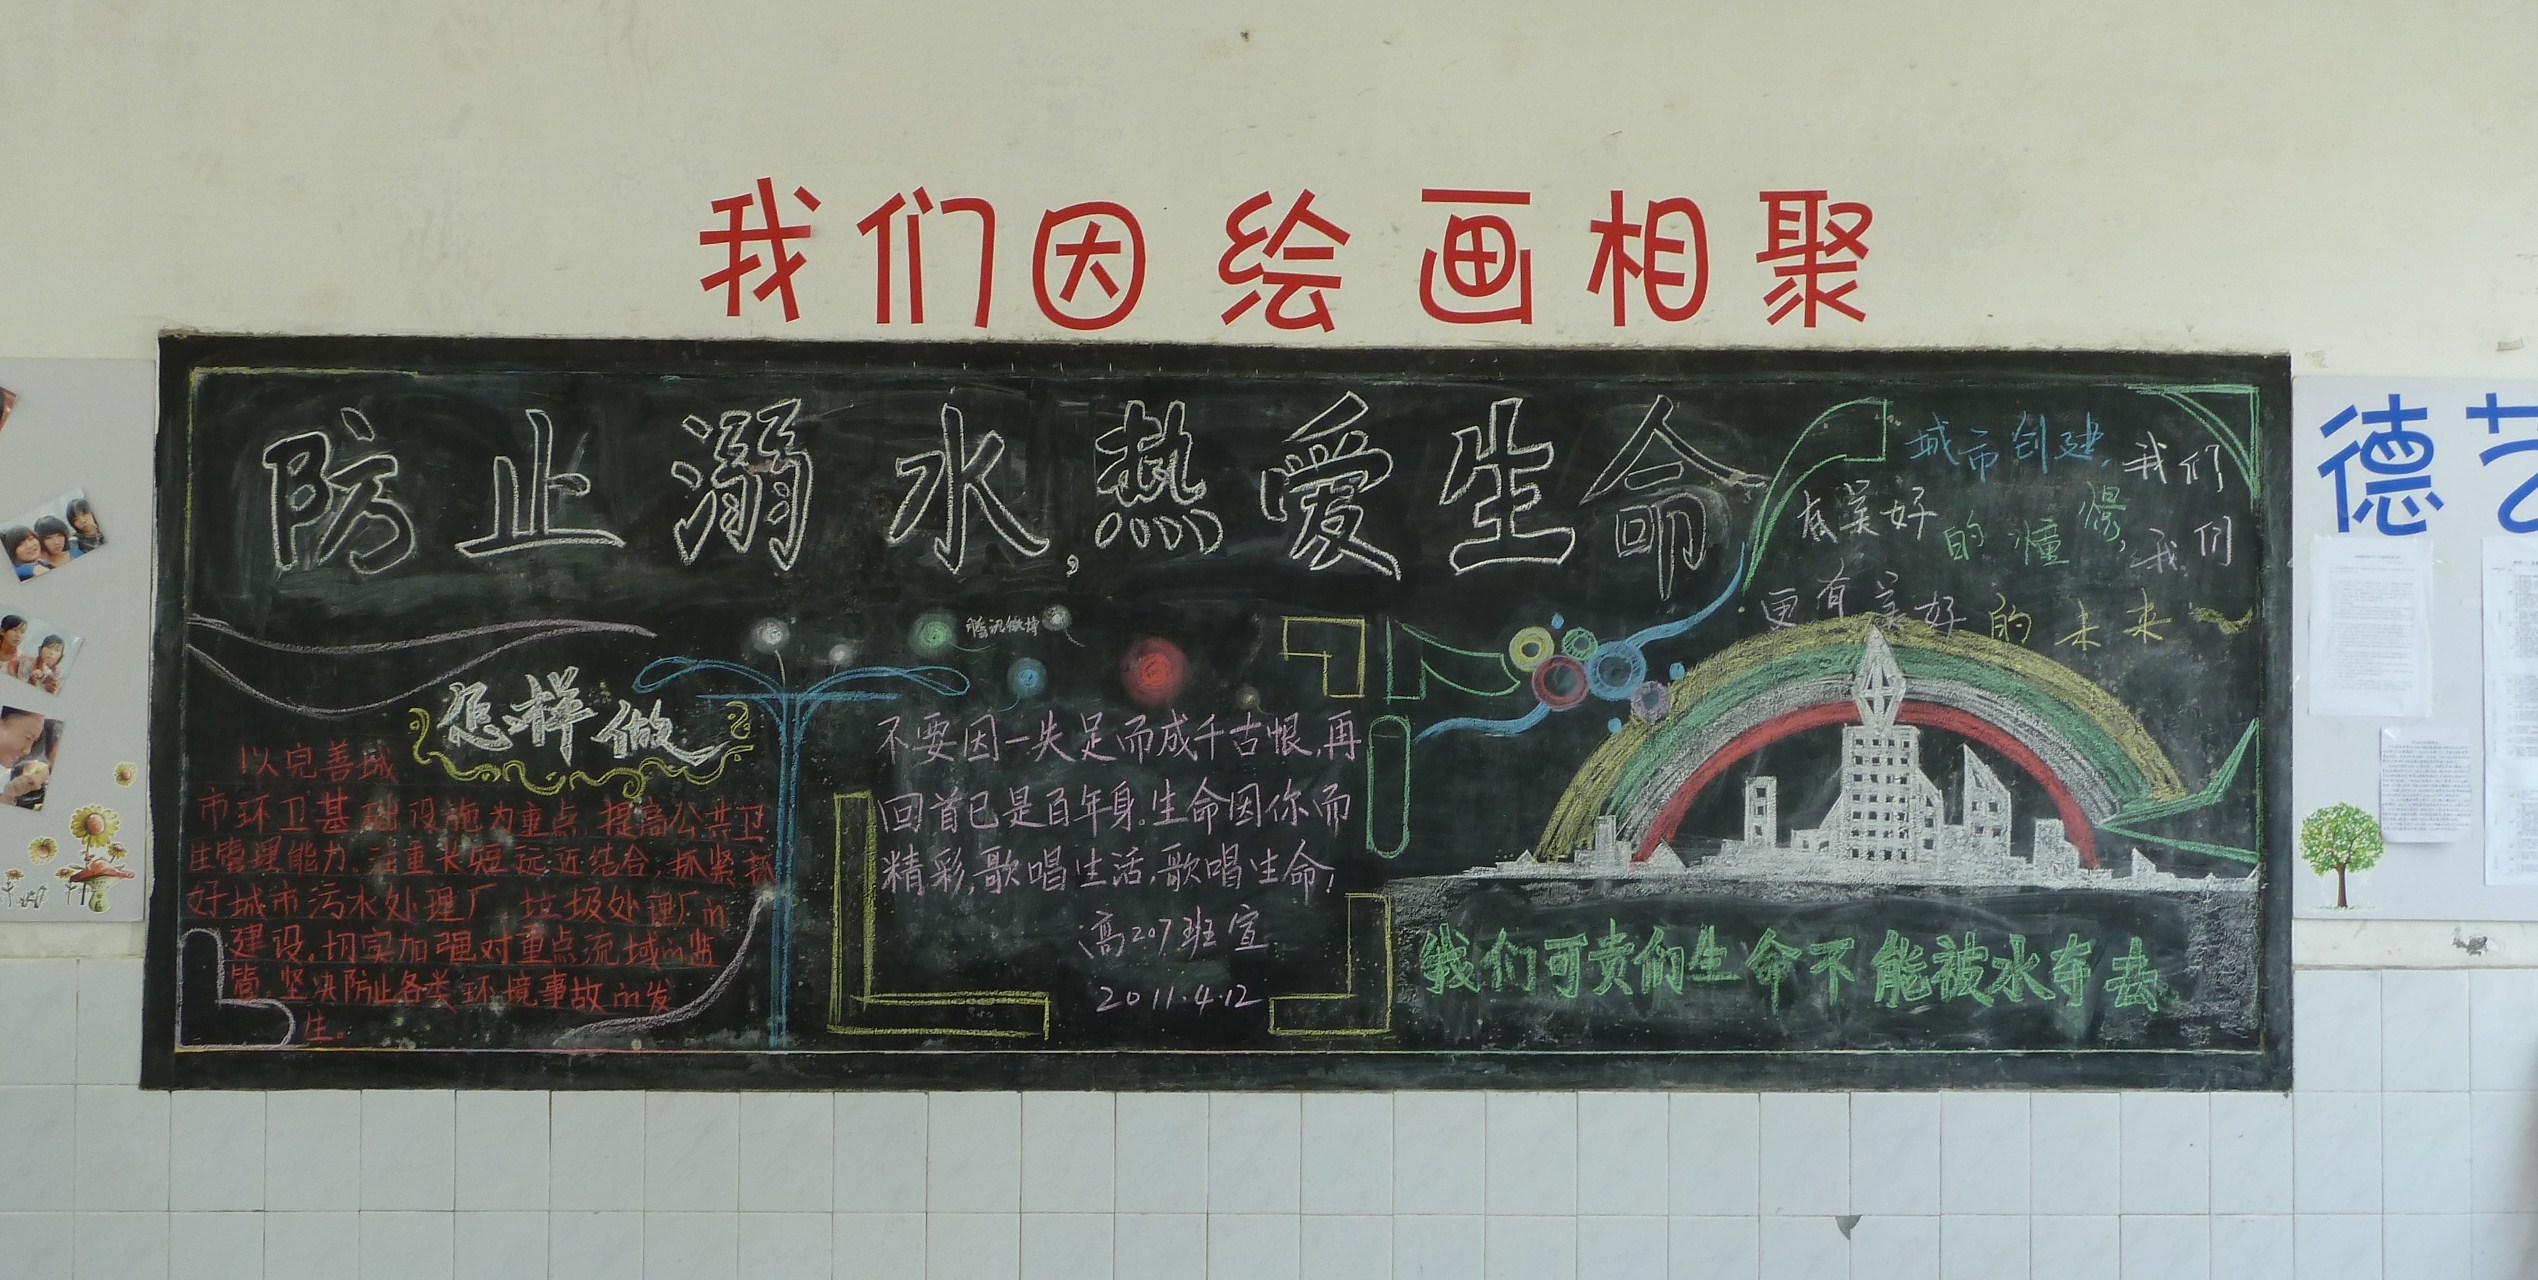 我们因绘画相聚
防止溺水,热爱生命
城市创建,我们
有美好的憧憬,我们
更有美好的未来~
德艺
腾讯微博
怎样做
以完善城
市环卫基础设施为重点,提高公共卫
生管理能力,注重长短远近结合,抓紧抓
好城市污水处理厂 垃圾处理厂的
建设。切实加强对重点流域的监
管,坚决防止各类环境事故的发
生。
不要因一失足而成千古恨,再
回首已是百年身。生命因你而
精彩,歌唱生活,歌唱生命!
高207班宣
2011.4.12
我们可贵们生命不能被水夺去